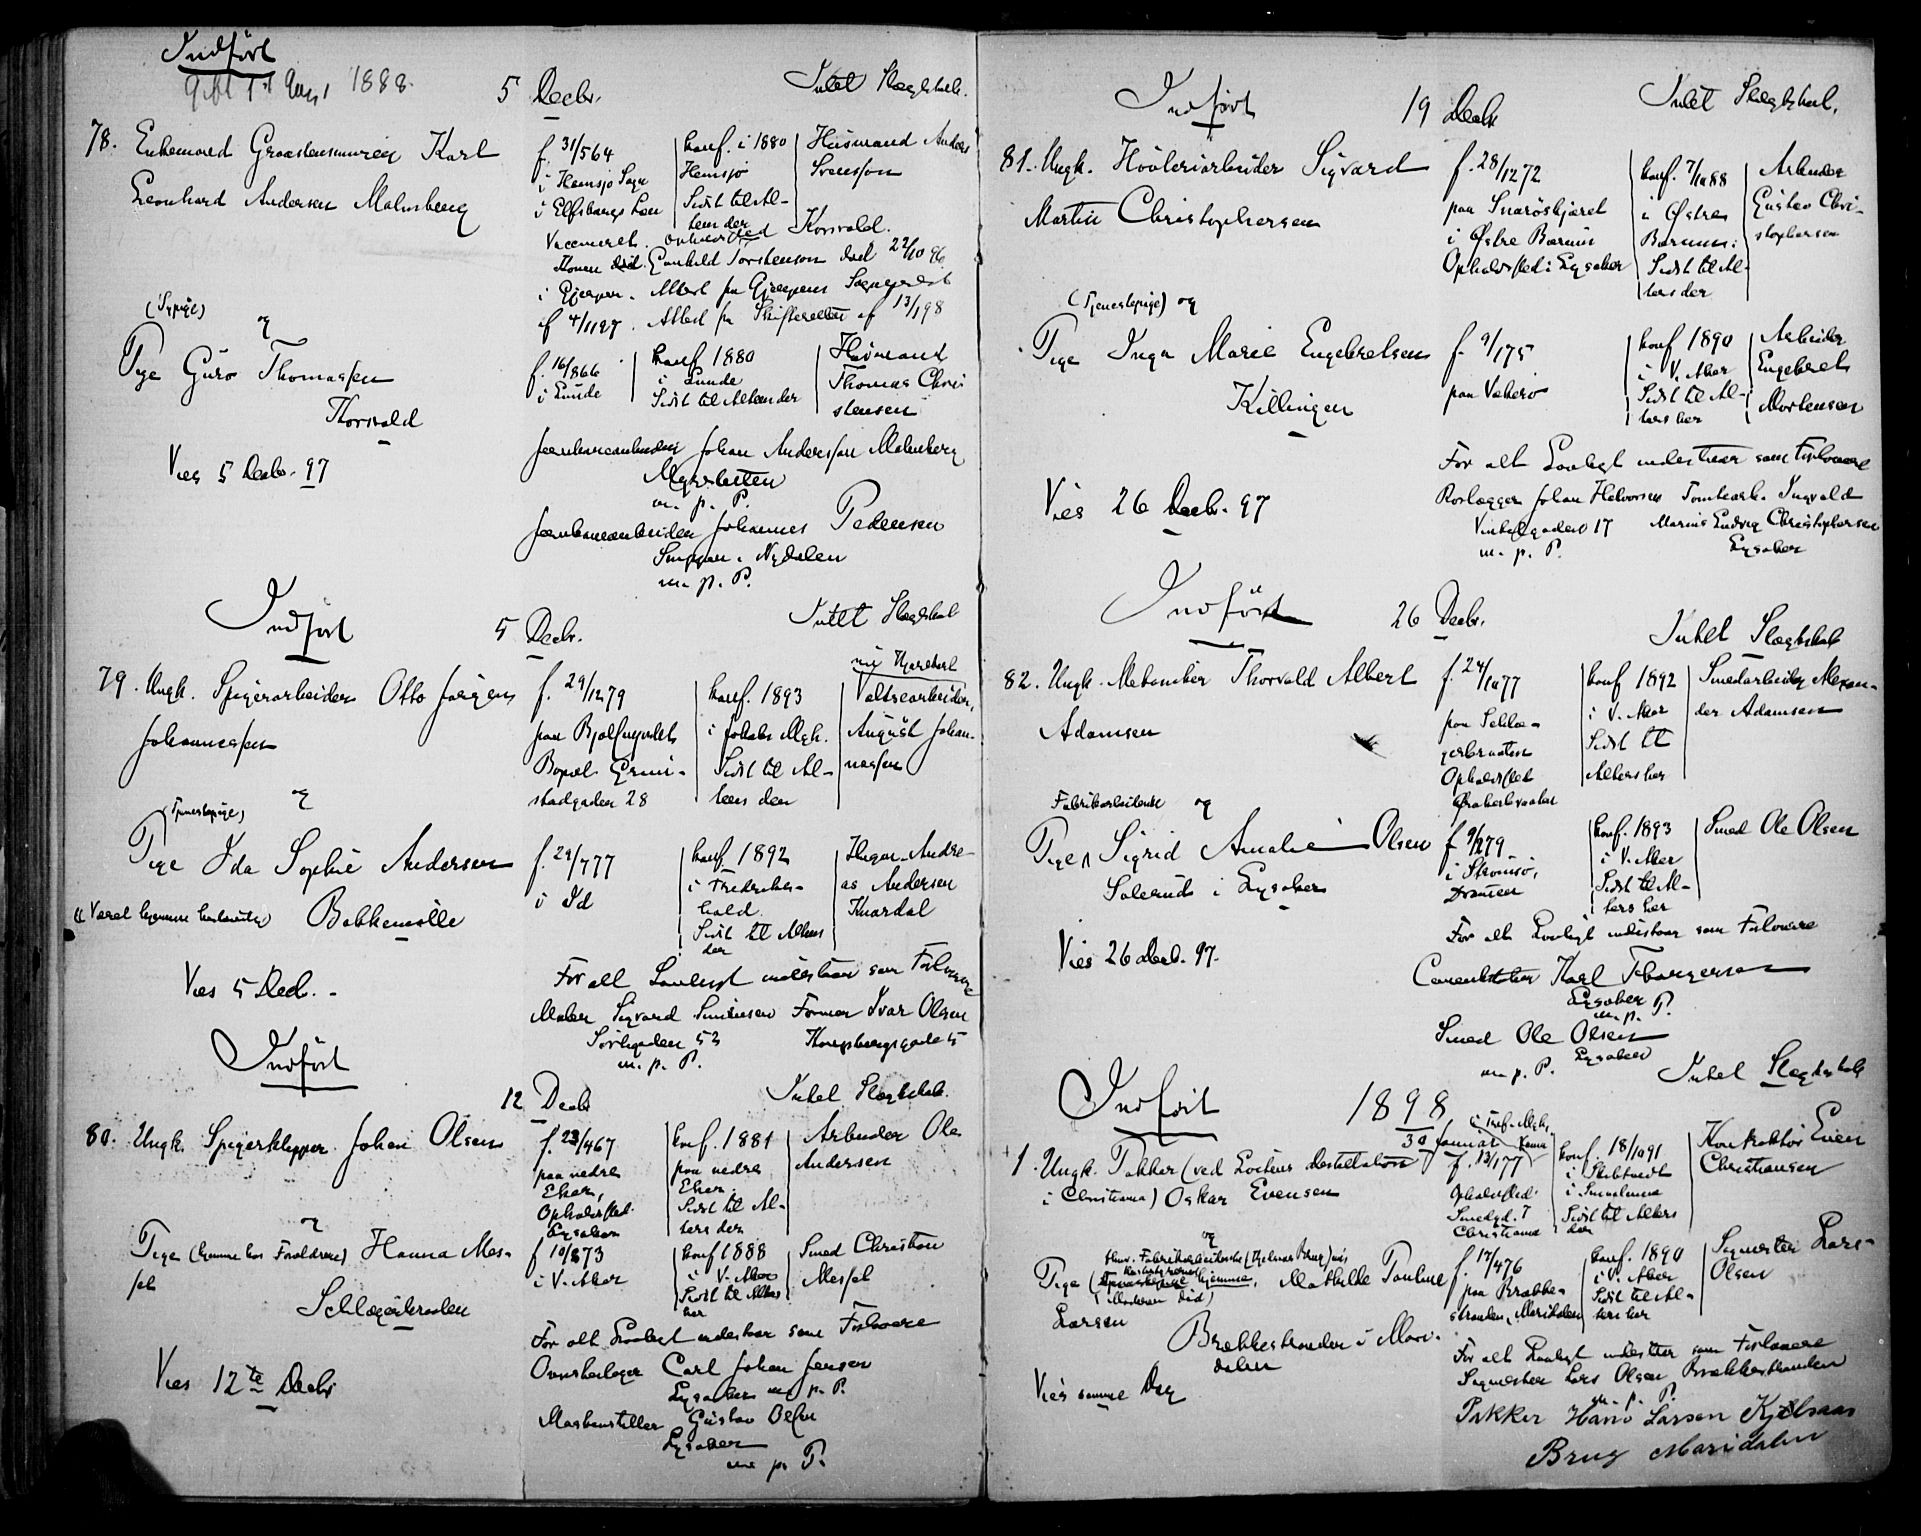 Indført
gift 1st 1888.
5 Decbr.
Intet Slægtskab.
78. Enkemand Graastensmurer Karl
Leonhard Andersen Malmberg
f. 31/5 64
i Hemsjø Sogn
i Elfsborgs Len
konf. i 1880
Hemsjø
Sidst til Al-
ters der
Husmand Anders
Svensson
Vaccineret. Opholdssted Korsvold.
Konen Gunhild Torstenson død 22/10 96
i Gjerpen. Attest fra Gjerpens Sogneprest
af 4/11 97. Attest fra Skifteretten af 13/1 98
(Sypige)
og
Pige Guro Thomassen
Korsvold
f. 16/8 66
i Lunde
konf. 1880
i Lunde
Sidst til Alters der
Husmand
Thomas Chri-
stensen
Vies 5 Decbr. 97
Jernbanearbeider Johan Andersson Malmberg
m. p. P.
Jernbanearbeider Johannes Pedersen
Nydalen
m. p. P.
Indført
5 Decbr.
Intet Slægtskab
79. Ungk. Spigerarbeider Otto Jørgen
Johannessen
f. 29/12 79
paa
Bopæl Grün-
stadgaden 28
konf. 1893
i Jakobs Mgh.
Sidst til Al-
ters der
Valsearbeider,
August Johan-
nessen
(Tjenestepige)
og
Pige Ida Sophie Andersen
(Været hjemme ) Bakkemølle
f. 29/7 77
i Id
konf. 1892
i Fredriks-
hald.
Sidst til Alters
der
Andre-
as Andersen
Knardal
Vies 5 Decb. -
For alt Lovligt indestaar som Forlovere
Maler Sigvard Simensen Former Ivar Olsen
Sørligaden 53
Kongsbergsgade 5
m. p. P.
Indført
12 Decbr
Intet Slægtskab.
80. Ungk. Spigerklipper Johan Olsen
f. 23/4 67
paa nedre
Eker,
Opholdssted
Lysaker
konf. 1881
paa nedre
Eker
Sidst til Al-
ters der
Arbeider Ole
Andersen
og
Pige (hjemme hos Forældrene) Hanna Mes-
sel
Schlægerbraaten
f 10/8 73
i V. Aker
konf 1888
i V. Aker
Sidst til Alters
her
Smed Christian
Messel
Vies 12te Decbr
For alt Lovligt indestaar som Forlovere
Ovnsbelæger Carl Johan Jensen
Lysaker m. p. P.
Maskinstiller Gustav Olsen
Lysaker
m. p. P.
Indført
19 Decbr
Intet Slægtskab.
81. Ungk. Høvleriarbeider Sigvard
Martin Christophersen
f. 28/12 72
paa Snarøskjæret
i Østre Bærum
Opholdssted: Lysaker
konf. 7/10 88
i Østre
Bærum:
Sidst til Al-
ters der
Arbeider
Gustav Chri-
stophersen
(Tjenestepige) og
Pige Inga Marie Engebretsen
Killingen
f. 9/1 75
paa Vækerø
konf 1890
i V. Aker
Sidst til Al-
ters her
Arbeider
Engebret
Mortensen
Vies 26 Decbr. 97
For alt Lovligt indestaar som Forlovere
Rørlægger Johan Halvorsen Tomtearb. Ingvald
Vinkelgaden 17 Marius Ludvig Christophersen
m. p. P. Lysaker
Indført
26 Decbr.
Intet Slægtskab
82. Ungk. Thorvald Albert
Adamsen
f. 24/10 77
paa Schlæ-
gerbraaten
Opholdssted
Ørakerbraaten
konf 1892
i V. Aker
Sidst til
Alters her
Smedarbeider Alexan-
der Adamsen
Fabrikarbeiderske og
Pige, Sigrid Amalie Olsen
Sollerud i Lysaker
f 9/2 79
i Strømsø,
Drammen
konf. 1893
i V. Aker
Sidst til Al-
ters her
Smed Ole Olsen
Vies 26 decb. 97.
For alt Lovligt indestaar som Forlovere
Karl Thorgersen
Lysaker
m. p. P.
Smed Ole Olsen
m. p. P. Lysaker
Intet Slægtskab
Indført
1898
30 Januar
1. Ungk. Pakker (ved Løitens destillation
i Christiania) Oskar Evensen
f. 13/1 77
Opholdssted
Smedgd. 7
Christiania
konf. 18/10 91
i Skiptvedt
i Smaalenene
Sidst til Alters
der
Kontraktør Even
Christiansen
og
Pige ( hjemme, Mathilde Pauline
Larsen
Brækkestranden i Mari-
dalen
f. 17/4 76
paa Brække-
stranden, Maridalen
konf. 1890
i V. Aker
Sidst til Al-
ters her
Sagmester Lars
Olsen
Vies samme Dag
For alt Lovligt indestaar som Forlovere
Sagmester Lars Olsen Brækkestranden
m. p. P.
Pakker Hans Larsen Kjelsaas
Brug Maridalen